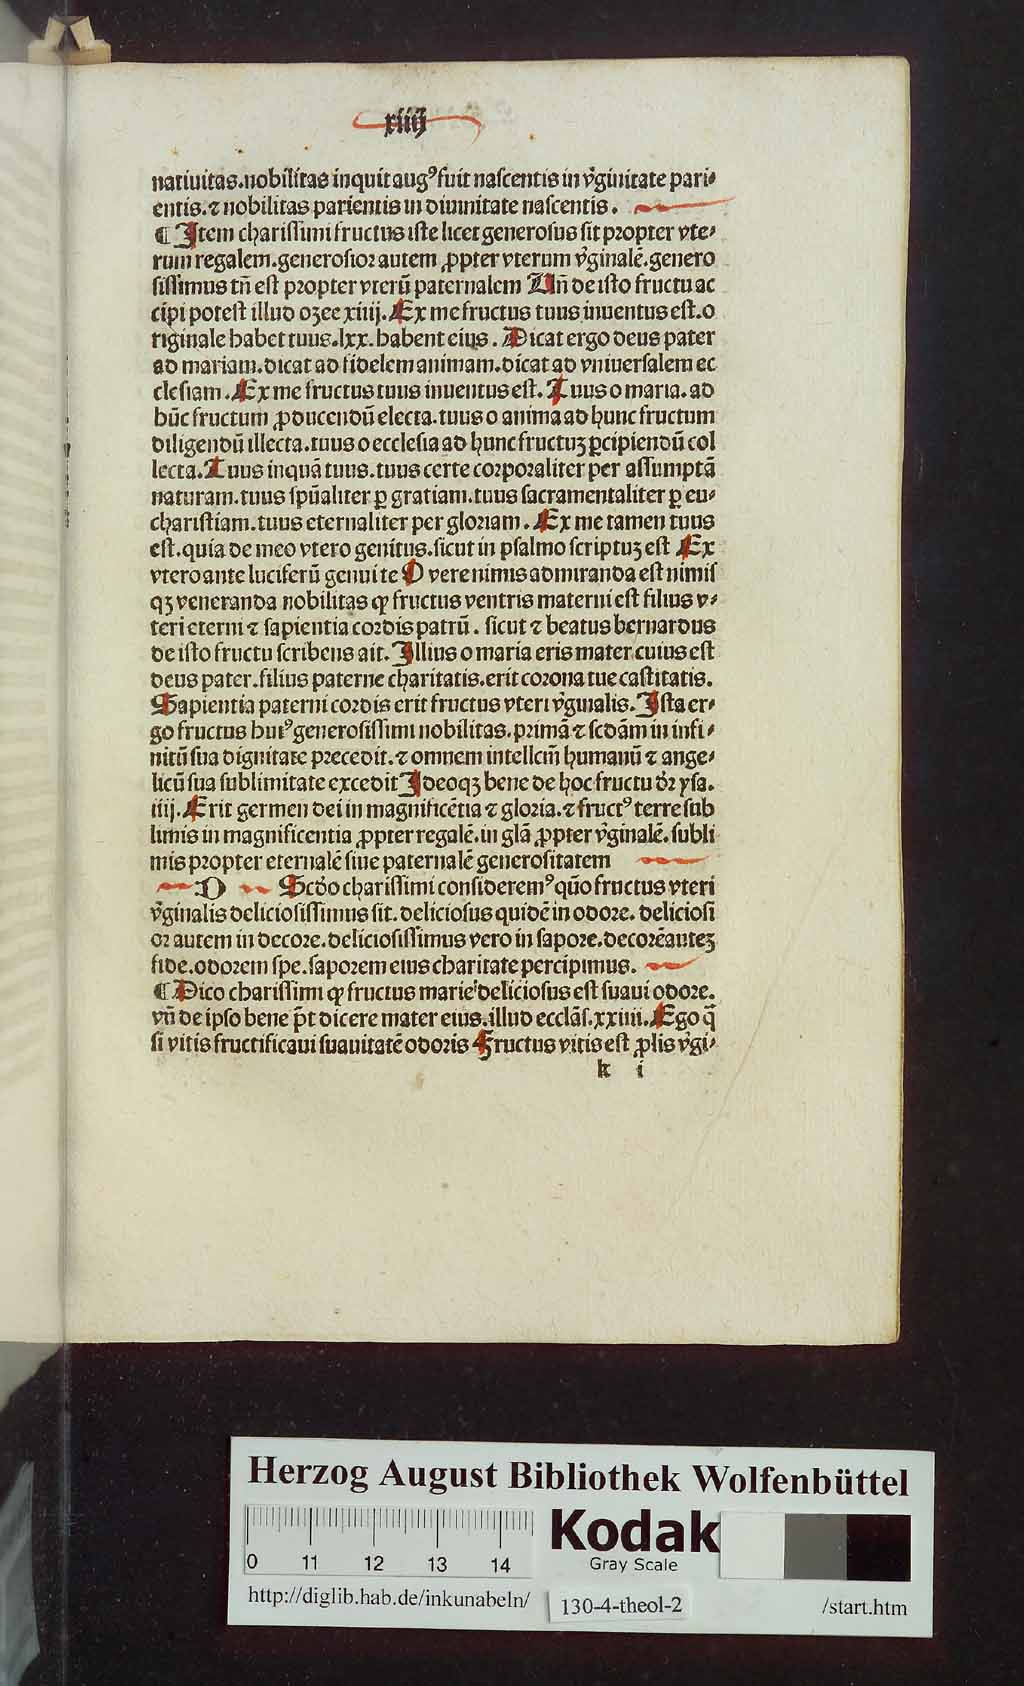 xiiij
natiuitas.nobilitas inquit augꝰ fuit nascentis in v̾ginitate pari⸗
entis.⁊ nobilitas parientis in diuinitate nascentis.
¶ Item charissimi fructus iste licet generosus sit propter vte⸗
rum regalem.generosior autem ꝓpter vterum v̾ginalē.genero
sissimus tn̄ est propter vterū paternalem Un̄ de isto fructu ac
cipi potest illud ozee xiiij.Ex me fructus tuus inuentus est.o
riginale habet tuus.lxx.habent eius. Dicat ergo deus pater
ad mariam.dicat ad fidelem animam.dicat ad vniuersalem ec
clesiam.Ex me fructus tuus inuentus est.Tuus o maria.ad
hūc fructum ꝓducendū electa.tuus o anima ad hunc fructum
diligendū illecta.tuus o ecclesia ad hunc fructuꝫ ꝑcipiendū col
lecta.Tuus inquā tuus.tuus certe corporaliter per assumptā
naturam.tuus spūaliter ꝑ gratiam.tuus sacramentaliter ꝑ eu⸗
charistiam.tuus eternaliter per gloriam. Ex me tamen tuus
est.quia de meo vtero genitus.sicut in psalmo scriptuꝫ est Ex
vtero ante luciferū genui te O vere nimis admiranda est nimis
qꝫ veneranda nobilitas ꝙ fructus ventris materni est filius v⸗
teri eterni ⁊ sapientia cordis patrū. sicut ⁊ beatus bernardus
de isto fructu scribens ait. Illius o maria eris mater cuius est
deus pater.filius paterne charitatis.erit corona tue castitatis.
Sapientia paterni cordis erit fructus vteri v̾ginalis.Ista er⸗
go fructus huiꝰ generosissimi nobilitas.primā ⁊ scdām in infi⸗
nitū sua dignitate precedit.⁊ omnem intellcm̄ humanū ⁊ ange⸗
licū sua sublimitate excedit Ideoqꝫ bene de hoc fructu dr̄ ysa.
iiij.Erit germen dei in magnificētia ⁊ gloria.⁊ fructꝰ terre sub
limis in magnificentia ꝓpter regalē.in glā ꝓpter v̾ginalē.subli
mis propter eternalē siue paternalē generositatem
D Scdo charissimi consideremꝰ quō fructus vteri
v̾ginalis deliciosissimus sit. deliciosus quidē in odore. deliciosi
or autem in decore.deliciosissimus vero in sapore.decorē auteꝫ
fide.odorem spe.saporem eius charitate percipimus.
¶ Dico charissimi ꝙ fructus marie deliciosus est suaui odore.
vn̄ de ipso bene p̄t dicere mater eius.illud ecclās.xxiiii.Ego q̄
si vitis fructificaui suauitatē odoris Fructus vitis est ꝓlis v̾gi⸗
k i
Herzog August Bibliothek Wolfenbüttel
0 11 12 13 14
Kodak
Gray Scale
http://diglib.hab.de/inkunabeln/ 130-4-theol-2 /start.htm